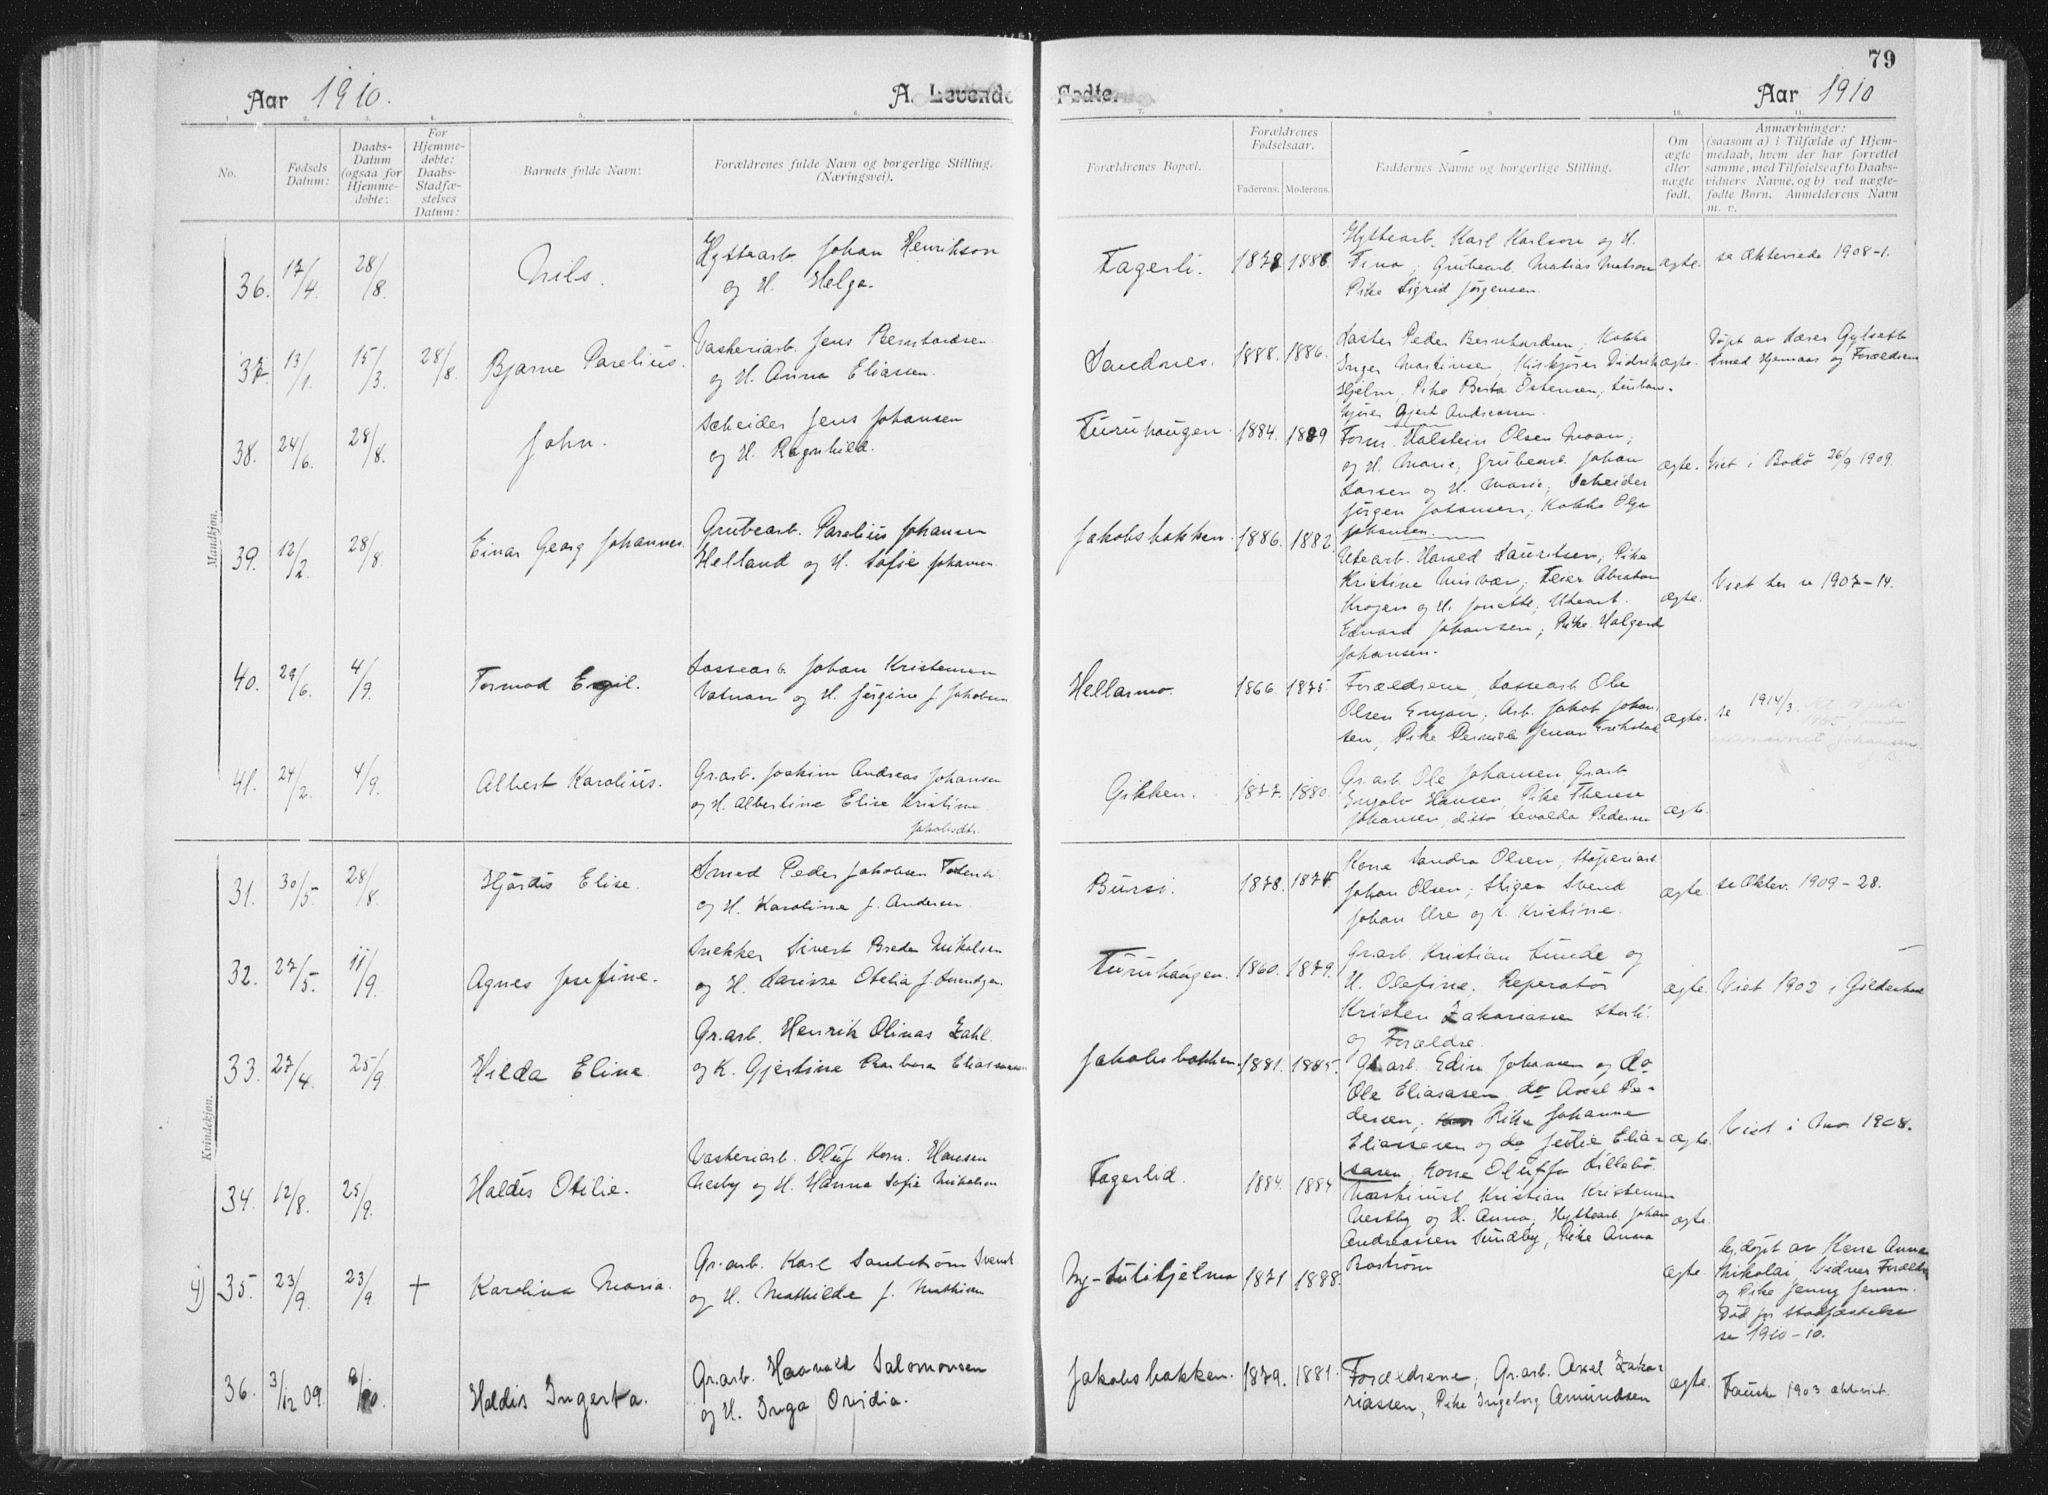 79
Aar 1910. A. Levende Fødte. Aar 1910
1. 2. 3. 4. 5. 6. 7. 8. 9. 10. 11.
No.
Fødsels Datum:
Daabs-Datum (ogsaa for Hjemme-døbte:
For Hjemme-døbte: Daabs-Stadfæ-stelses Datum:
Barnets fulde Navn:
Forældrenes fulde Navn og borgerlige Stilling. (Næringsvei).
Forældrenes Bopæl.
Forældrenes Fødselsaar.
Faderens. Moderens.
Faddernes Navne og borgerlige Stilling.
Om ægte eller uægte født.
Anmærkninger:
(saasom a) i Tilfælde af Hjem-
medaab, hvem der har forrettet
samme, med Tilføielse af to Daabs-
vidners Navne, og b) ved uægte-
fødte Børn. Anmelderens Navn
m. v.
Mandkjøn.
36. 17/4. 28/8. Nils.
Hyttearb. Johan Henrikson
og H. Helga.
Fagerli. 1878. 1888.
Hyttearb. Karl Karlson og H.
Tina; Grubearb. Matias Matson
Pike Sigrid Jørgensen.
ægte. se Ekteviede 1908-1.
37. 13/1. 15/3. 28/8. Bjarne Parelius.
Vaskeriarb. Jens Bernhardsen
og H. Anna Eliassen.
Sandnes. 1888. 1886.
Laster Peder Bernhardsen, Kokke
Inger Martinsen, Kiskjører Didrik
Hjelm, Pike Berta Østensen,
Gjert Andreassen.
ægte. Døpt av Lærer Gylseth
Smed Hjemaas og Forældrene
38. 24/6. 28/8. John.
Scheider Jens Johansen
og H. Ragnhild.
Furuhaugen. 1884. 1889
Form. Halstein Olsen Moan;
og H. Marie; Grubearb. Johan
Larsen og H. Marie; Scheider
Jørgen Johansen; Kokke Olga
Johansen.
ægte. Viet i Bodø 26/9 1909.
39. 12/2. 28/8. Einar Georg Johannes.
Grubearb. Parelius Johansen
Helland og H. Sofie Johansen
Jakobsbakken. 1886. 1882.
Utearb. Harald Lauritsen; Pike
Kristine Misvær; Feier Abraham
Krogen og H. Jonette; Utearb.
Edvard Johansen; Pike Halgerd
Johansen.
ægte. Viet her se 1907-14.
40. 29/6. 4/9. Tormod Egil.
Lassearb. Johan Kristensen
Vatnan og H. Jørgine f. Jakobsen
Hellarmo. 1866. 1875.
Forældrene, Lassearb. Ole
Olsen Engan; Arb. Jakob Johan-
sen, Pike Pernille Jensen
ægte. se 1914/3.
41. 24/2. 4/9. Albert Karolius.
Gr.arb. Joakim Andreas Johansen
og H. Albertine Elise Kristine
Jakobsdtr.
Gikken. 1877. 1880.
Gr.arb. Ole Johansen, Gr.arb
Ingolv Hansen, Pike Therese
Johansen, ditto Sevalda Pedersen
ægte.
Kvindekjøn.
31. 30/5. 28/8. Hjørdis Elise.
Smed Peder Jakobsen
og H. Karoline f. Andersen.
Bursi. 1878. 1874.
Kone Sandra Olsen, Støperiarb.
Johan Olsen; Stiger Svend
Johan Ure og K. Kristine.
ægte. se Ektev. 1909-28.
32. 27/5. 11/9. Agnes Josefine.
Snekker Sivert Breda Mikalsen
og H. Larine Otelia f.
Furuhaugen. 1860. 1879.
Gr.arb. Kristian Lunde og
H. Olefine. Reperatør
Kristen Zakariassen
og Forældre.
ægte. Viet 1902 i Gildeskaal
33. 27/4. 25/9. Hilda Eline
Gr.arb. Henrik Olinas Zahl
og K. Gjertine Barbara Eliassen
Jakobsbakken. 1881. 1885.
Gr.arb. Edin Johansen og do
Ole Eliasasen do Axel Pe-
dersen, Pike Johanne
Eliassen og do Jentie Elia-
sasen, Kone Oluffa Lillebø.
ægte. Viet i Mars 1908.
34. 12/8. 25/9. Haldis Otilie.
Vaskeriarb. Oluf Korn. Hansen
Nesby og H. Hanna Sofie Mikalsen
Fagerlid. 1884. 1884
Maskinist Kristian Kristensen
Nestby og H. Anna, Hyttearb. Johan
Andreassen Sundby, Pike Anna
Boström
ægte.
4) 35. 23/9. 23/9. + Karolina Maria.
Gr.arb. Karl Sandström
og H. Mathilde f. Mathisen
Ny-Sulitjelma 1871 1888.
ægte. hj.døpt av Kone Anna
Mikolai, Vidner Forældre
og Pike Jenny Jensen.
Død før stadfæstelse
se 1910-10.
36. 3/12 09. Haldis Ingerta.
Gr.arb. Haavald Salomonsen
og H. Inga Ovidia.
Jakobsbakken. 1879. 1881.
Forældrene, Gr.arb. Axel Zaka-
riassen, Pike Ingeborg Amundsen
ægte. Fauske 1903 ekteviet.